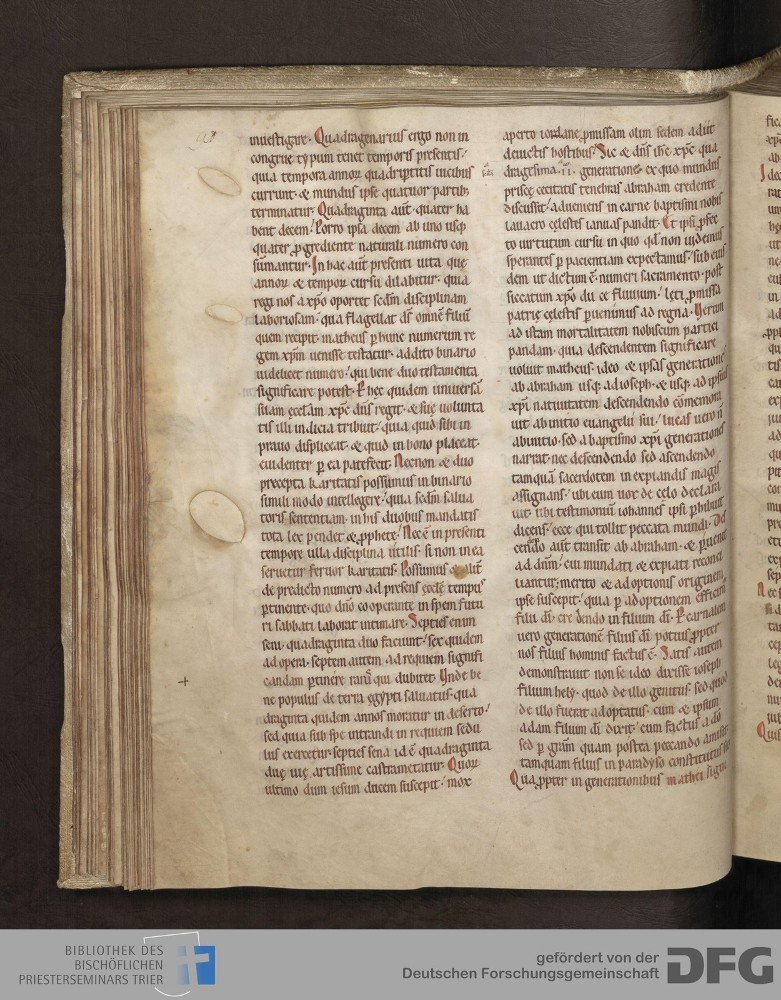 inuestigare. Quadragenarius ergo non in
congrue typum tenet temporis presentis.
quia tempora annoꝝ quadripertitis uicibus
currunt. & mundus ipse quatuor partibꝫ
terminatur. Quadraginta aut̄ quater ha
bent decem. Porro ipsa decem ab uno usqꝫ
quater ꝓgrediente naturali numero con
sum̄antur. In hac aut̄ presenti uita quę
annoꝝ & tempoꝝ cursu dilabitur. qua
regi nos a xp̄o oportet scd̄m disciplinam
laboriosam. qua flagellat ds̄ omnē filiū
quem recipit. matheus ꝑ hunc numerum re
gem xp̄m uenisse testatur. addito binario
uidelicet numero. qui bene duo testamenta
significare potest. Per hęc quidem uniuersā
suam ęcclām xp̄c dn̄s regit. & suę uolunta
tis illi indicia tribuit. quia quid sibi in
prauo displiceat. & quid in bono placeat.
euidenter ꝑ ea patefecit. Necnon & duo
precepta karitatis possumus in binario
simili modo intellegere. quia scd̄m salua
toris sententiam. in his duobus mandatis
tota lex pendet & ꝓphetę. Nec ē in presenti
tempore ulla disciplina utilis. si non in ea
seruetur feruor karitatis. Possumus & aut̄
de predicto numero ad presens ęcclę tempus
ꝑtinente. quo dn̄o cooperante in spem futu
ri sabbati laborat intimare. Septies enim
seni. quadraginta duo faciunt. sex quidem
ad opera. septem autem ad requiem signifi
candam ꝑtinere rarus qui dubitet. Unde be
ne populus de terra egypti saluatus. qua
draginta quidem annos moratur in deserto.
sed quia sub spe intrandi in requiem sedu
lus exercetur. septies sena id ē quadraginta
duę uię artissime castrametatur. Quoꝝ
ultimo dum iesum ducem suscepit. mox
aperto iordane ꝓmissam olim sedem adiit
deuictis hostibus. Sic & dn̄s ih̄c xp̄c qua
dragesima ii. generatione ex quo mundus
priscę cecitatis tenebras abraham credente
discussit. adueniens in carne baptismi nobis
lauacro cęlestes ianuas pandit. Et ipsi ꝓfec
to uirtutum cursu in quo qd̄ non uidemus
sperantes ꝑ pacientiam expectamus. sub eius
dem ut dictum ē. numeri sacramento. post
siccatum xp̄o duce fluuium. lęti ꝓmissa
patrię cęlestis ꝑuenimus ad regna. Uerum
ad istam mortalitatem nobiscum partici
pandam. quia descendentem significare
uoluit matheus. ideo & ipsas generationes
ab abraham usqꝫ ad ioseph. & usqꝫ ad ipsius
xp̄i natiuitatem descendendo cōmemora
uit ab initio euangelii sui. lucas uero n̄
ab initio. sed a baptismo xp̄i generationes
narrat. nec descendendo sed ascendendo
tamquā sacerdotem in expiandis magis
assignans. ubi eum uox de celo declara
uit. ubi testimoniū iohannes ipsi ꝑhibuit
dicens. ecce qui tollit peccata mundi. Des
cendo aut̄ transit ab abraham. & ꝑuenit
ad dn̄m. cui mundati & expiati reconci
liantur. merito & adoptionis originem
ipse suscepit. quia ꝑ adoptionem efficim
filii dī. credendo in filium dī. Per carnalem
uero generationē filius dī. potius ꝓpter
nos filius hominis factus ē. Satis autem
demonstrauit non se ideo dixisse ioseph
filium hely. quod de illo genitus. sed quod
de illo fuerat adoptatus. cum & ipsum
adam filium dī dixit. cum factus a dō
sed ꝑ grām quam postea peccando amisit.
tamquam filius in paradyso constitutus sit
Qua ꝓpter in generationibus mathei signi
BIBLIOTHEK DES
BISCHÖFLICHEN
PRIESTERSEMINARS TRIER
gefördert von der
Deutschen Forschungsgemeinschaft
DFG